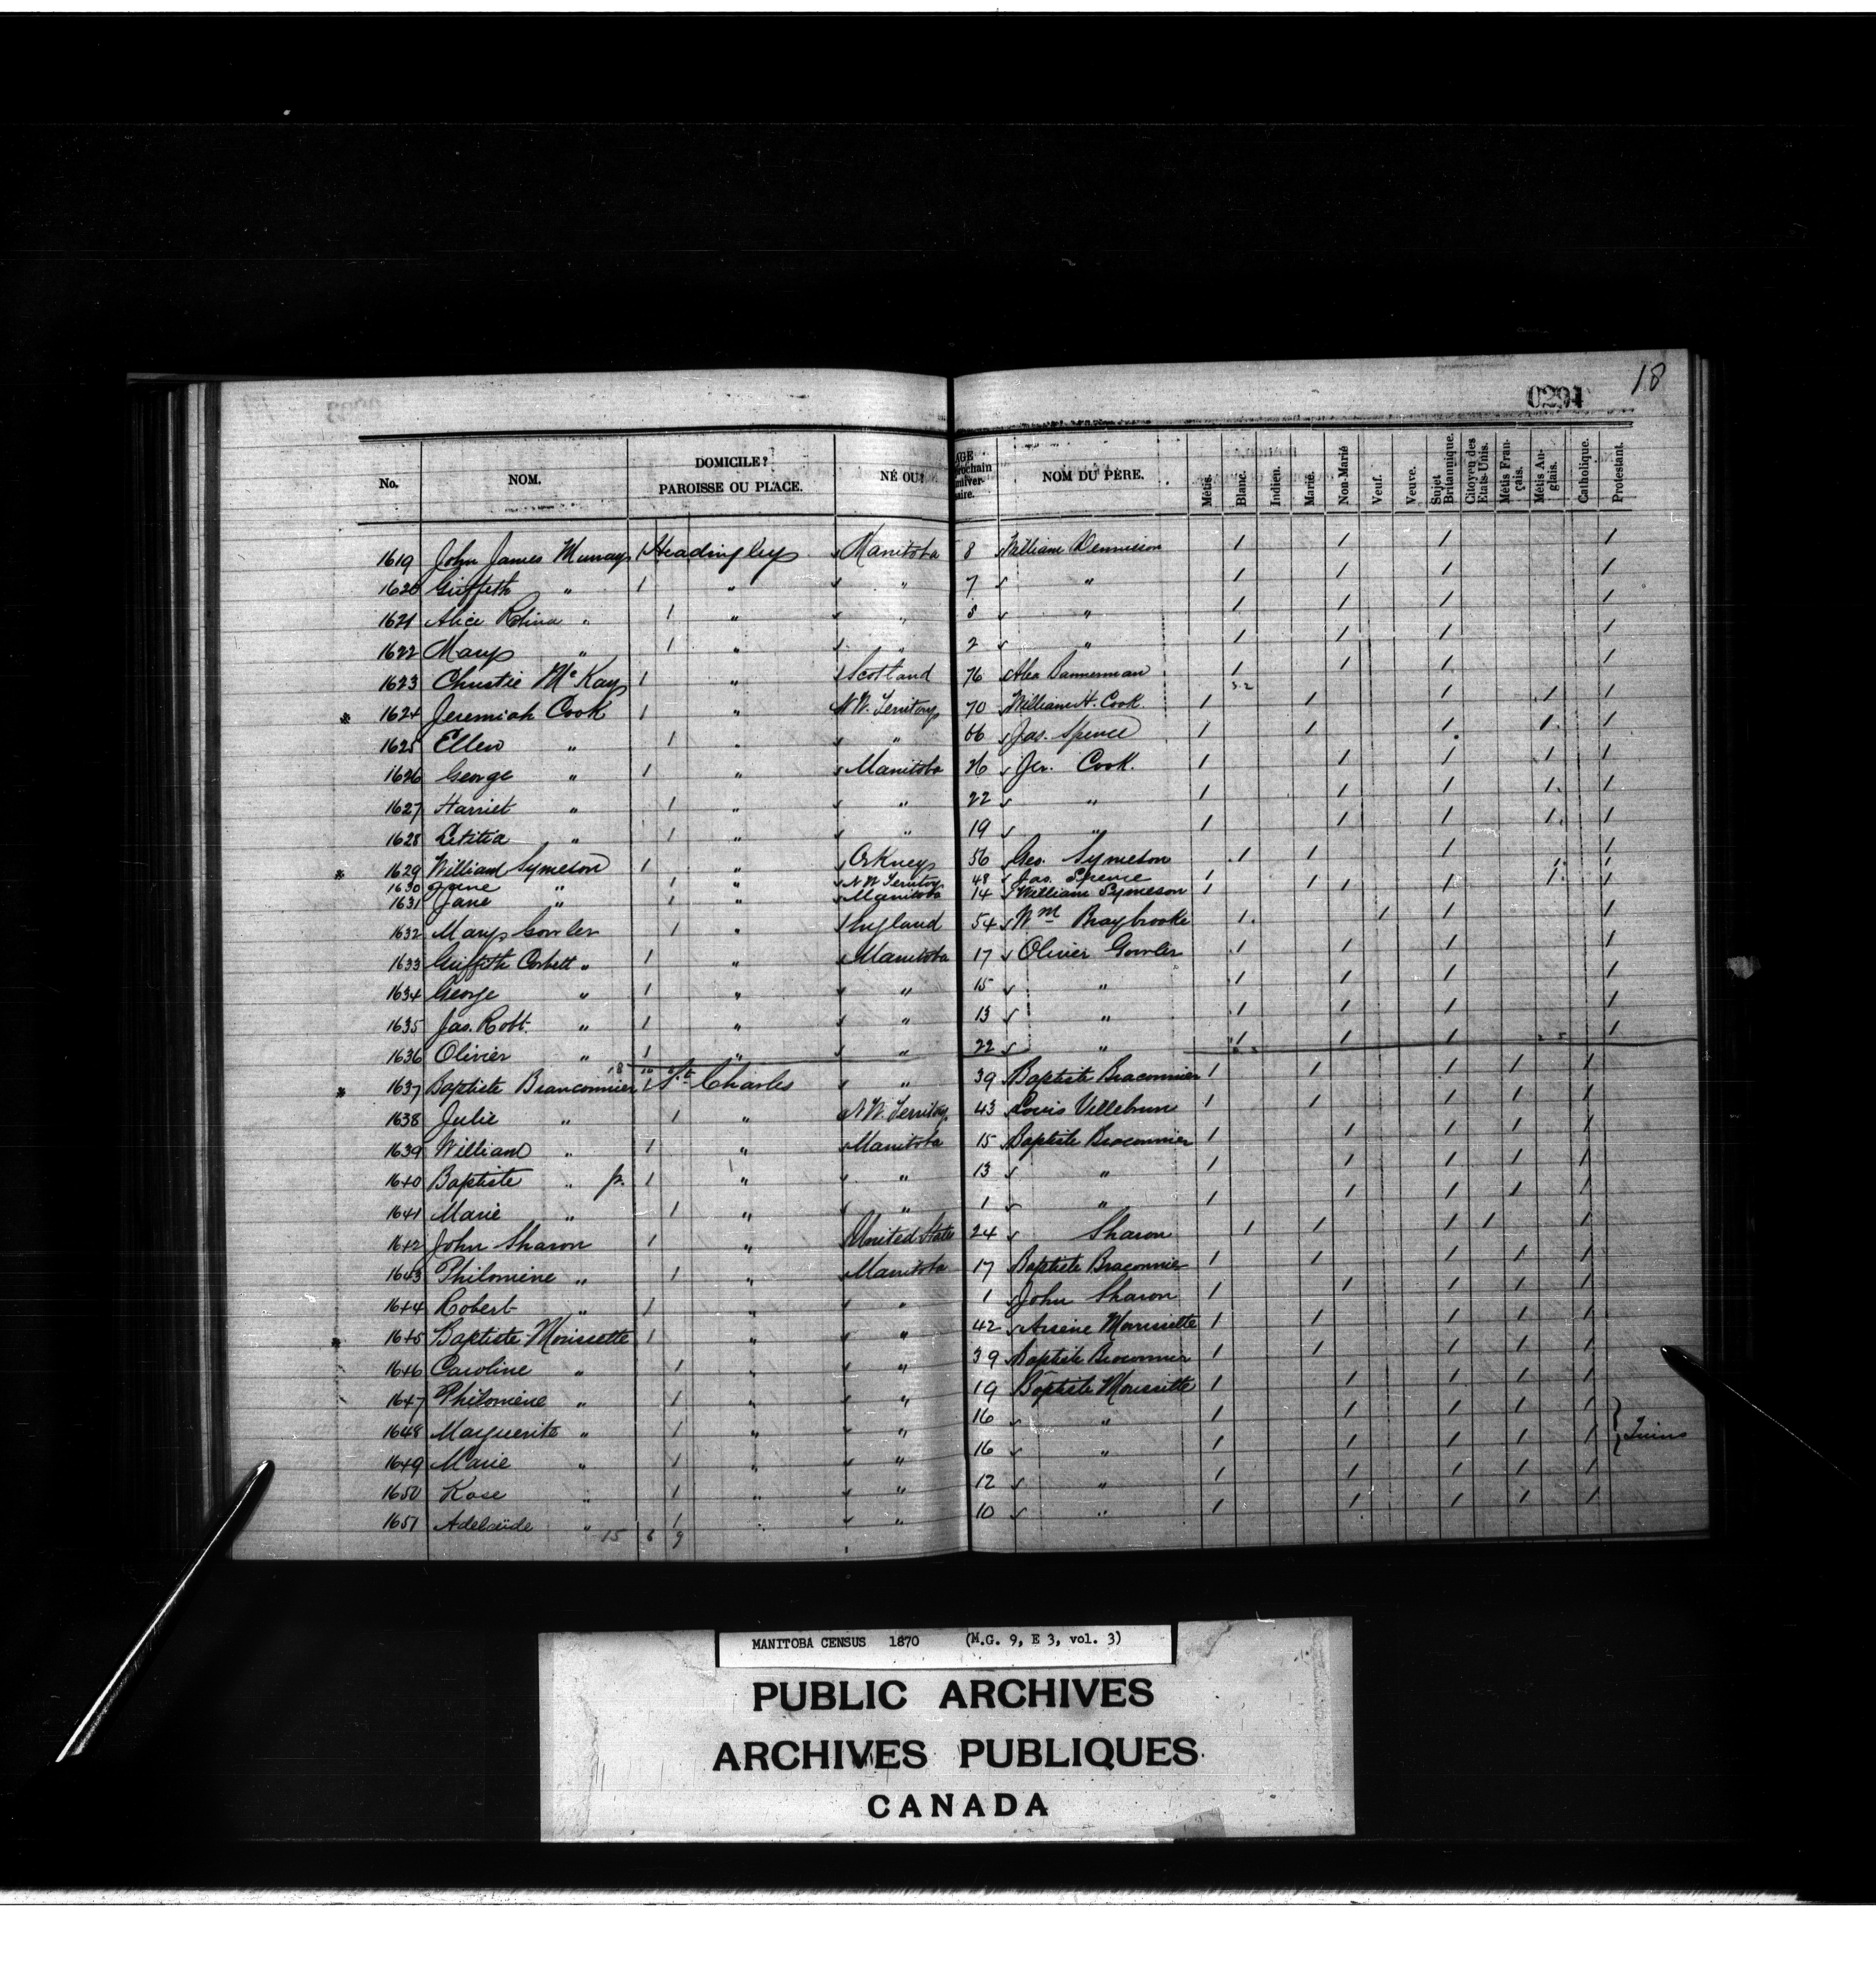 18
0291
No. NOM. DOMICILE? PAROISSE OU PLACE. NÉ OU? AGE prochain anniversaire. NOM DU PÈRE. Métis. Blanc. Indien. Marié. Non-Marié Veuf. Veuve. Sujet Britannique. Citoyen des Etats-Unis. Métis Français. Métis Anglais. Catholique. Protestant.
1619 John James Murray 1 Headingley Manitoba 8 William Dennison 1 1 1 1
1620 Griffeth " 1 " " 7 " 1 1 1 1
1621 Alice " 1 " " " 1 1 1 1
1622 Mary " 1 " " 2 " 1 1 1 1
1623 Christie McKay 1 " Scotland 76 Alex Bannerman 1 1 1 1
1624 Jeremiah Cook 1 " N W. Territory 70 William H. Cook. 1 1 1 1 1
1625 Ellen " 1 " " 66 Jas. Spence 1 1 1 1 1
1626 George " 1 " Manitoba 26 Jer. Cook. 1 1 1 1 1
1627 Harriet " 1 " " 22 " 1 1 1 1 1
1628 Letitia " 1 " " 19 " 1 1 1 1 1
1629 William Symeson 1 " Orkneys 56 Geo. Symeson 1 1 1 1
1630 Jane " 1 " N W Territory 48 Jas. Spence 1 1 1 1
1631 Jane " 1 " Manitoba 14 William Symeson 1 1 1 1 1
1632 Mary Gowler 1 " England 54 Wm Braybrooke 1 1 1 1
1633 Griffith Corbett " 1 " Manitoba 17 Olivier Gowler 1 1 1 1
1634 George " 1 " " 15 " 1 1 1 1
1635 Jas. Robt. " 1 " " 13 " 1 1 1 1
1636 Olivier " 1 " " 22 " 1 1 1 1
1637 Baptiste Branconnier 1 St. Charles " 39 Baptiste Braconnier 1 1 1 1 1
1638 Julie " 1 " N W. Territory 43 Louis Villebrun 1 1 1 1 1
1639 William " 1 " Manitoba 15 Baptiste Braconnier 1 1 1 1 1
1640 Baptiste " Jr. 1 " " 13 " 1 1 1 1 1
1641 Marie " 1 " " 1 " 1 1 1 1 1
1642 John Sharon 1 " United States 24 Sharon 1 1 1 1 1
1643 Philomène " 1 " Manitoba 17 Baptiste Braconnier 1 1 1 1 1
1644 Robert " 1 " " 1 John Sharon 1 1 1 1 1
1645 Baptiste Morissette 1 " " 42 Arsène Morrissette 1 1 1 1 1
1646 Caroline " 1 " " 39 Baptiste Braconnier 1 1 1 1 1
1647 Philomène " 1 " " 19 Baptiste Morissette 1 1 1 1 1
1648 Marguerite " 1 " " 16 " 1 1 1 1 1
1649 Marie " 1 " " 16 " 1 1 1 1 1 Twins
1650 Rose " 1 " " 12 " 1 1 1 1 1
1651 Adelaïde " 1 " " 10 " 1 1 1 1 1
15 6 9
MANITOBA CENSUS 1870 (M.G. 9, E 3, vol. 3)
PUBLIC ARCHIVES
ARCHIVES PUBLIQUES
CANADA